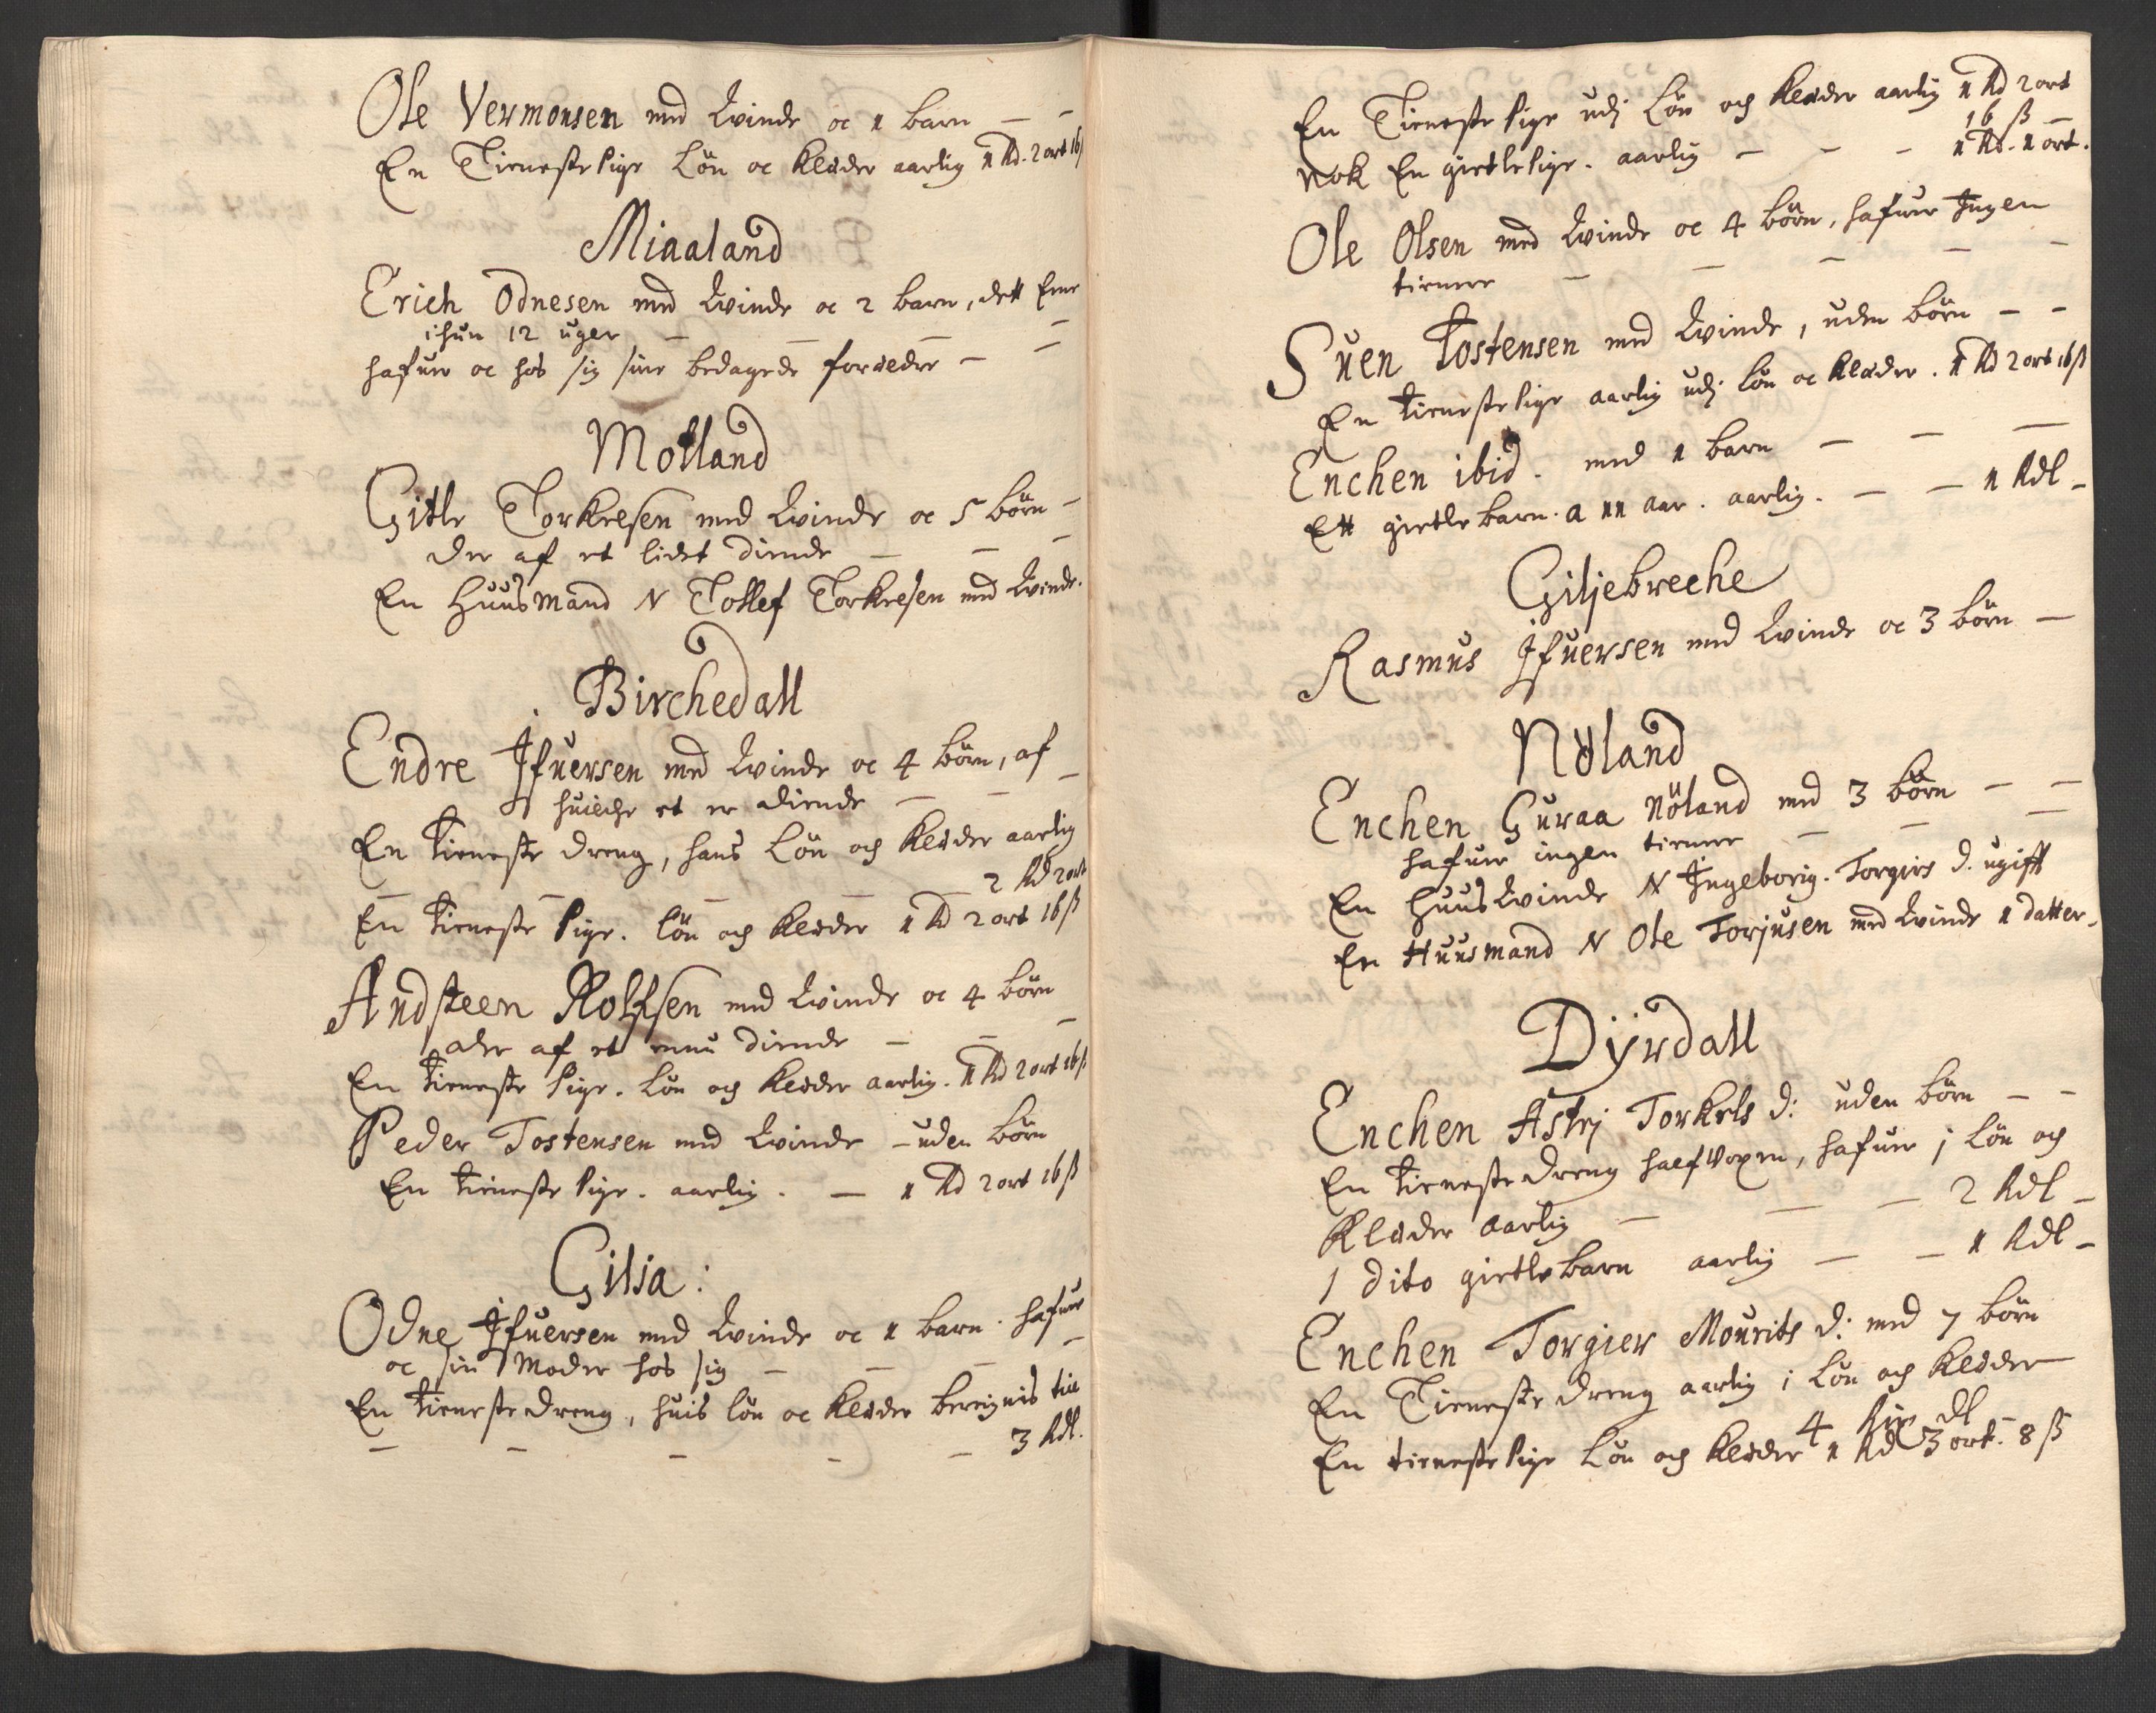 Ole Vermonsen med Kvinde oc 1 barn — —
En Tieneste Pige Løn oc Klæder aarlig 1 Rd. 2 ort 16 ß
Miaaland
Erich Odnesen med Kvinde oc 2 barn, dett Eene
ichun 12 uger — — —
hafuer oc hos sig sine bedagede forældre — —
Motland
Gitle Torkelsen med Kvinde oc 5 børn —
der af et lidet diende — — —
En Huusmand N Tollef Torkelsen med Kvinde.
Birchedall
Endre Ifuersen med Kvinde oc 4 børn, af
huilche et er diende — — —
En tieneste dreng, hans Løn och Klæder aarlig
— — — — 2 Rd 2 ort
En tieneste Pige. løn och Klæder 1 Rd 2 ort 16 ß
Andsteen Rolfsen med Kvinde oc 4 børn
der af et ennu diende — — —
En tieneste Pige. Løn och Klæder aarlig. 1 Rd 2 ort 16 ß
Peder Tostensen med Kvinde — uden børn
En tieneste Pige. aarlig. — 1 Rd 2 ort 16 ß
Gilia:
Odne Ifuersen med Kvinde oc 1 barn. hafuer
oc sin Moder hos sig — — — —
En tieneste dreng, huis løn oc Klæder beregnis till
— — — — — 3 Rdl.
En Tieneste Pige udj Løn och Klæder aarlig 1 Rd 2 ort
16 ß —
Nok En gietlepige. aarlig — — — 1 Rd. 1 ort.
Ole Olsen med Kvinde oc 4 børn, hafuer Ingen
tienere — — — — —
Suen Tostensen med Kvinde, uden børn — —
En tieneste Pige aarlig udj Løn oc Klæder. 1 Rd 2 ort 16 ß
Enchen ibid. med 1 barn — — —
Ett gietle barn. a 11 aar. aarlig. — — 1 Rdl —
Giljebreche
Rasmus Ifuersen med Kvinde oc 3 børn —
Nøland
Enchen Guraa Nøland med 3 børn — —
hafuer ingen tienere — — —
En huusKvinde N Ingeborig Torgiers d. ugifft
En Huusmand N Ole Torjusen med Kvinde 1 datter.
Dÿrdall
Enchen Astrj Torkels d: uden børn — —
En tieneste dreng halfvoxen, hafuer j Løn och
Klæder aarlig — — — 2 Rdl —
1 dito gietlebarn aarlig — — 1 Rdl —
Enchen Torgier Mourits d: med 7 børn
En Tieneste dreng aarlig i Løn och Klæder
4 Rix dl
En tieneste Pige Løn och Klæder 1 Rd 3 ort. 8 ß